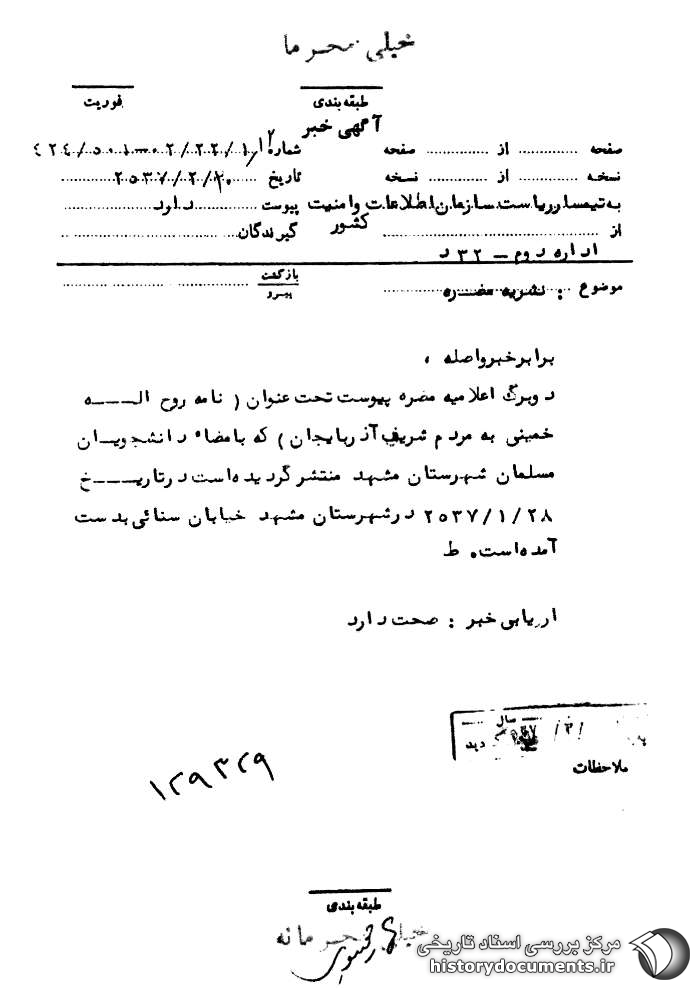 خیلی محرما
طبقه‌بندی
فوریت
آگهی خبر
صفحه از صفحه
شماره ۴۲۴/۵۰۱-۰۲/۲۲/۱
نسخه از نسخه
تاریخ ۲۵۳۷/۲/۲۰
به تیمسار ریاست سازمان اطلاعات و امنیت کشور
پیوست دارد
از اداره دوم - ۳۲ د
گیرندگان
موضوع : نشریه مضره
بازگشت
پیرو
برابر خبر واصله ،
دو برگ اعلامیه مضره پیوست تحت عنوان ( نامه روح الــــه
خمینی به مردم شریف آذربایجان ) که بامضاء دانشجویــان
مسلمان شهرستان مشهد منتشر گردیده‌است در تاریــــخ
۲۵۳۷/۱/۲۸ در شهرستان مشهد خیابان سنائی بدست
آمده‌است. ط
ارزیابی خبر : صحت دارد
سال
دید
ملاحظات
۱۲۹۳۲۹
طبقه‌بندی
خیلی محرمانه
مرکز بررسی اسناد تاریخی
historydocuments.ir